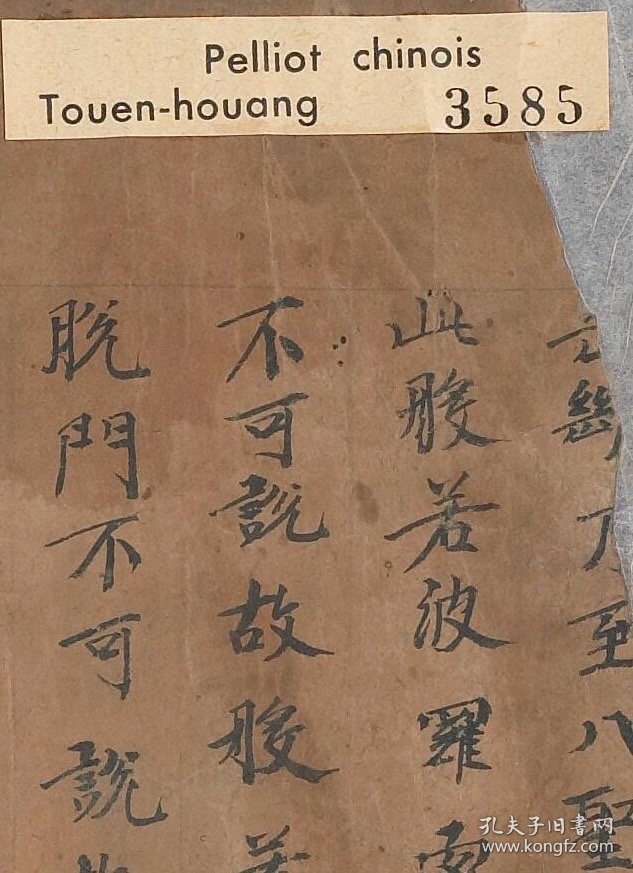 Pelliot chinois
Touen-houang 3585
乃至八聖
此般若波羅
不可說故般若
脫門不可說
孔夫子旧书网
www.kongfz.com